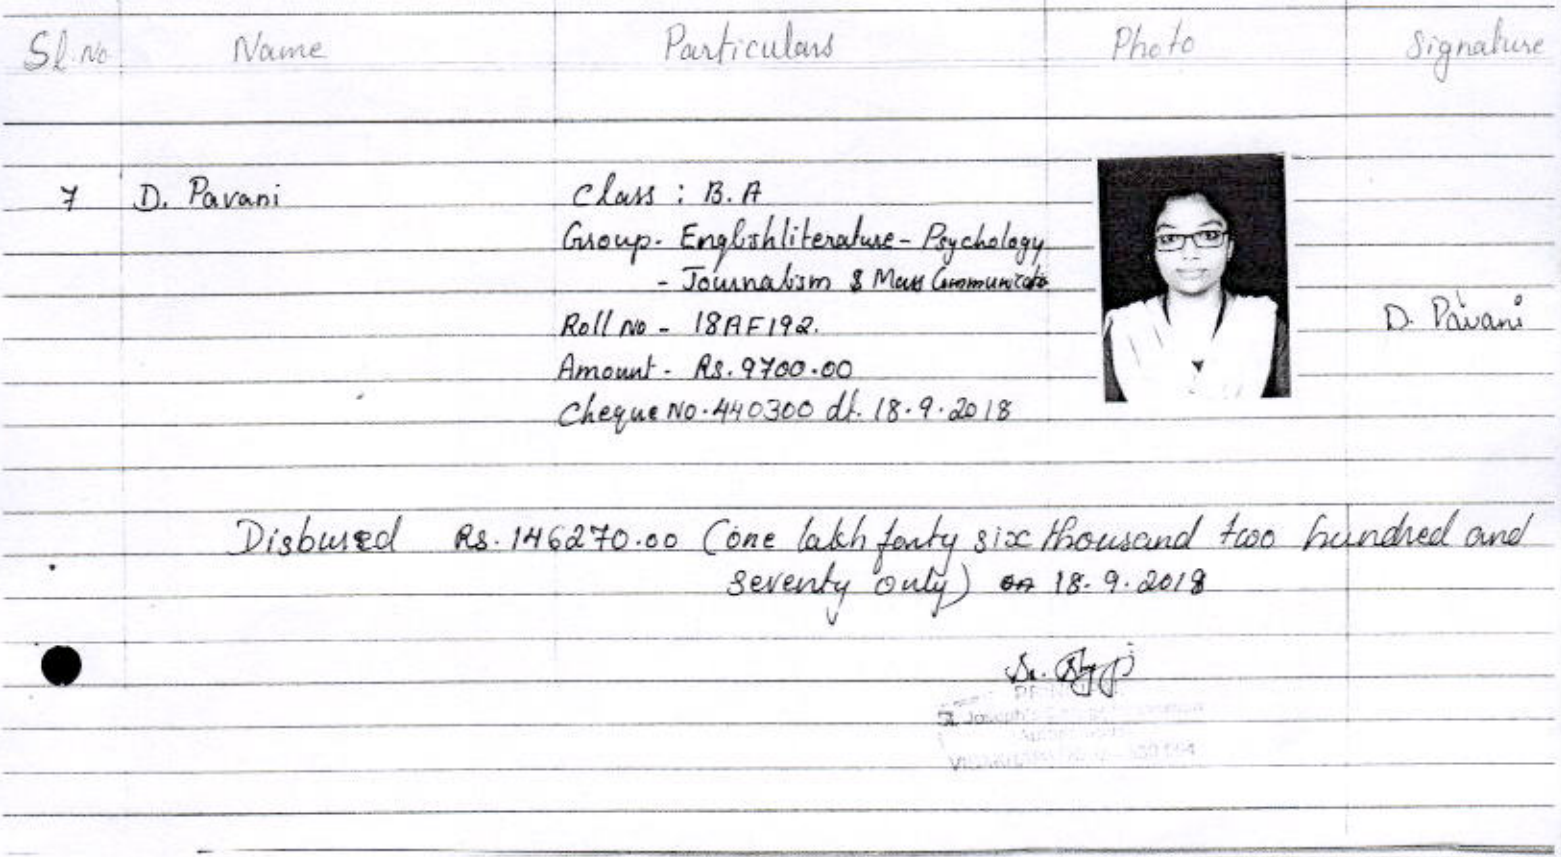 Sl. No Name Particulars Photo Signature
7 D. Pavani Class : B.A
Group - English literature - Psychology
- Journalism & Mass Communicatio
Roll No - 18AF192.
D. Pavani
Amount - Rs. 9700.00
Cheque No. 440300 dt. 18.9.2018
Disbursed Rs. 146270.00 (one lakh forty six thousand two hundred and
seventy only) on 18.9.2018